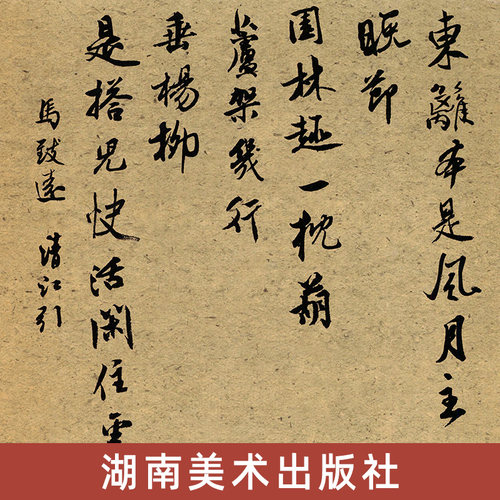 東籬本是風月主
晚節
園林趣一枕葫
蘆架幾行
垂楊柳
是搭兒快活閑住
馬致遠 清江引
湖南美术出版社